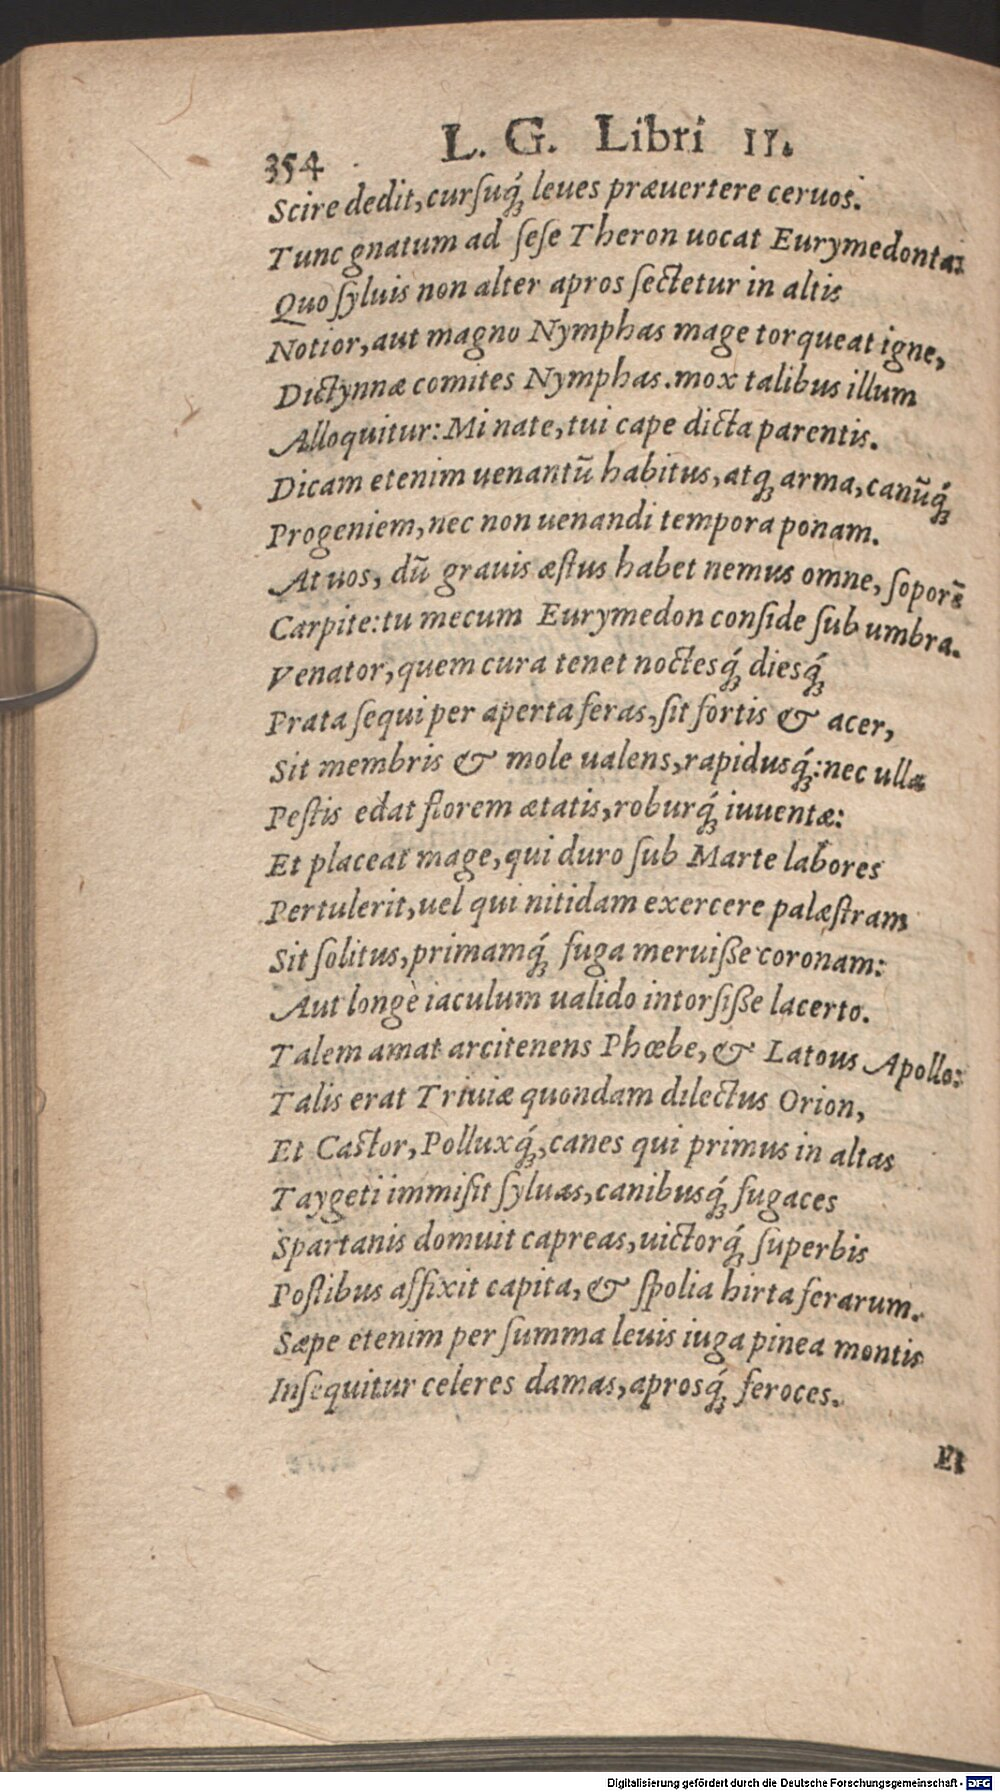 354 L. G. Libri II.
Scire dedit, cursuq́ꝫ leues præuertere ceruos.
Tunc gnatum ad sese Theron uocat Eurymedonta:
Quo syluis non alter apros sectetur in altis
Notior, aut magno Nymphas mage torqueat igne,
Dictynnæ comites Nymphas. mox talibus illum
Alloquitur: Mi nate, tui cape dicta parentis.
Dicam etenim uenantũ habitus, atqꝫ arma, canũq́ꝫ
Progeniem, nec non uenandi tempora ponam.
At uos, dũ grauis æstus habet nemus omne, soporẽ
Carpite: tu mecum Eurymedon conside sub umbra.
Venator, quem cura tenet noctesq́ꝫ diesq́ꝫ
Prata sequi per aperta feras, sit fortis & acer,
Sit membris & mole ualens, rapidusq́ꝫ: nec ulla
Pestis edat florem ætatis, roburq́ꝫ iuuentæ:
Et placeat mage, qui duro sub Marte labores
Pertulerit, uel qui nitidam exercere palæstram
Sit solitus, primamq́ꝫ fuga meruiße coronam:
Aut longè iaculum ualido intorsiße lacerto.
Talem amat arcitenens Phœbe, & Latous Apollo:
Talis erat Triuiæ quondam dilectus Orion,
Et Castor, Polluxq́ꝫ, canes qui primus in altas
Taygeti immisit syluas, canibusq́ꝫ fugaces
Spartanis domuit capreas, uictorq́ꝫ superbis
Postibus affixit capita, & spolia hirta ferarum.
Sæpe etenim per summa leuis iuga pinea montis
Insequitur celeres damas, aprosq́ꝫ feroces.
Et
Digitalisierung gefördert durch die Deutsche Forschungsgemeinschaft - DFG